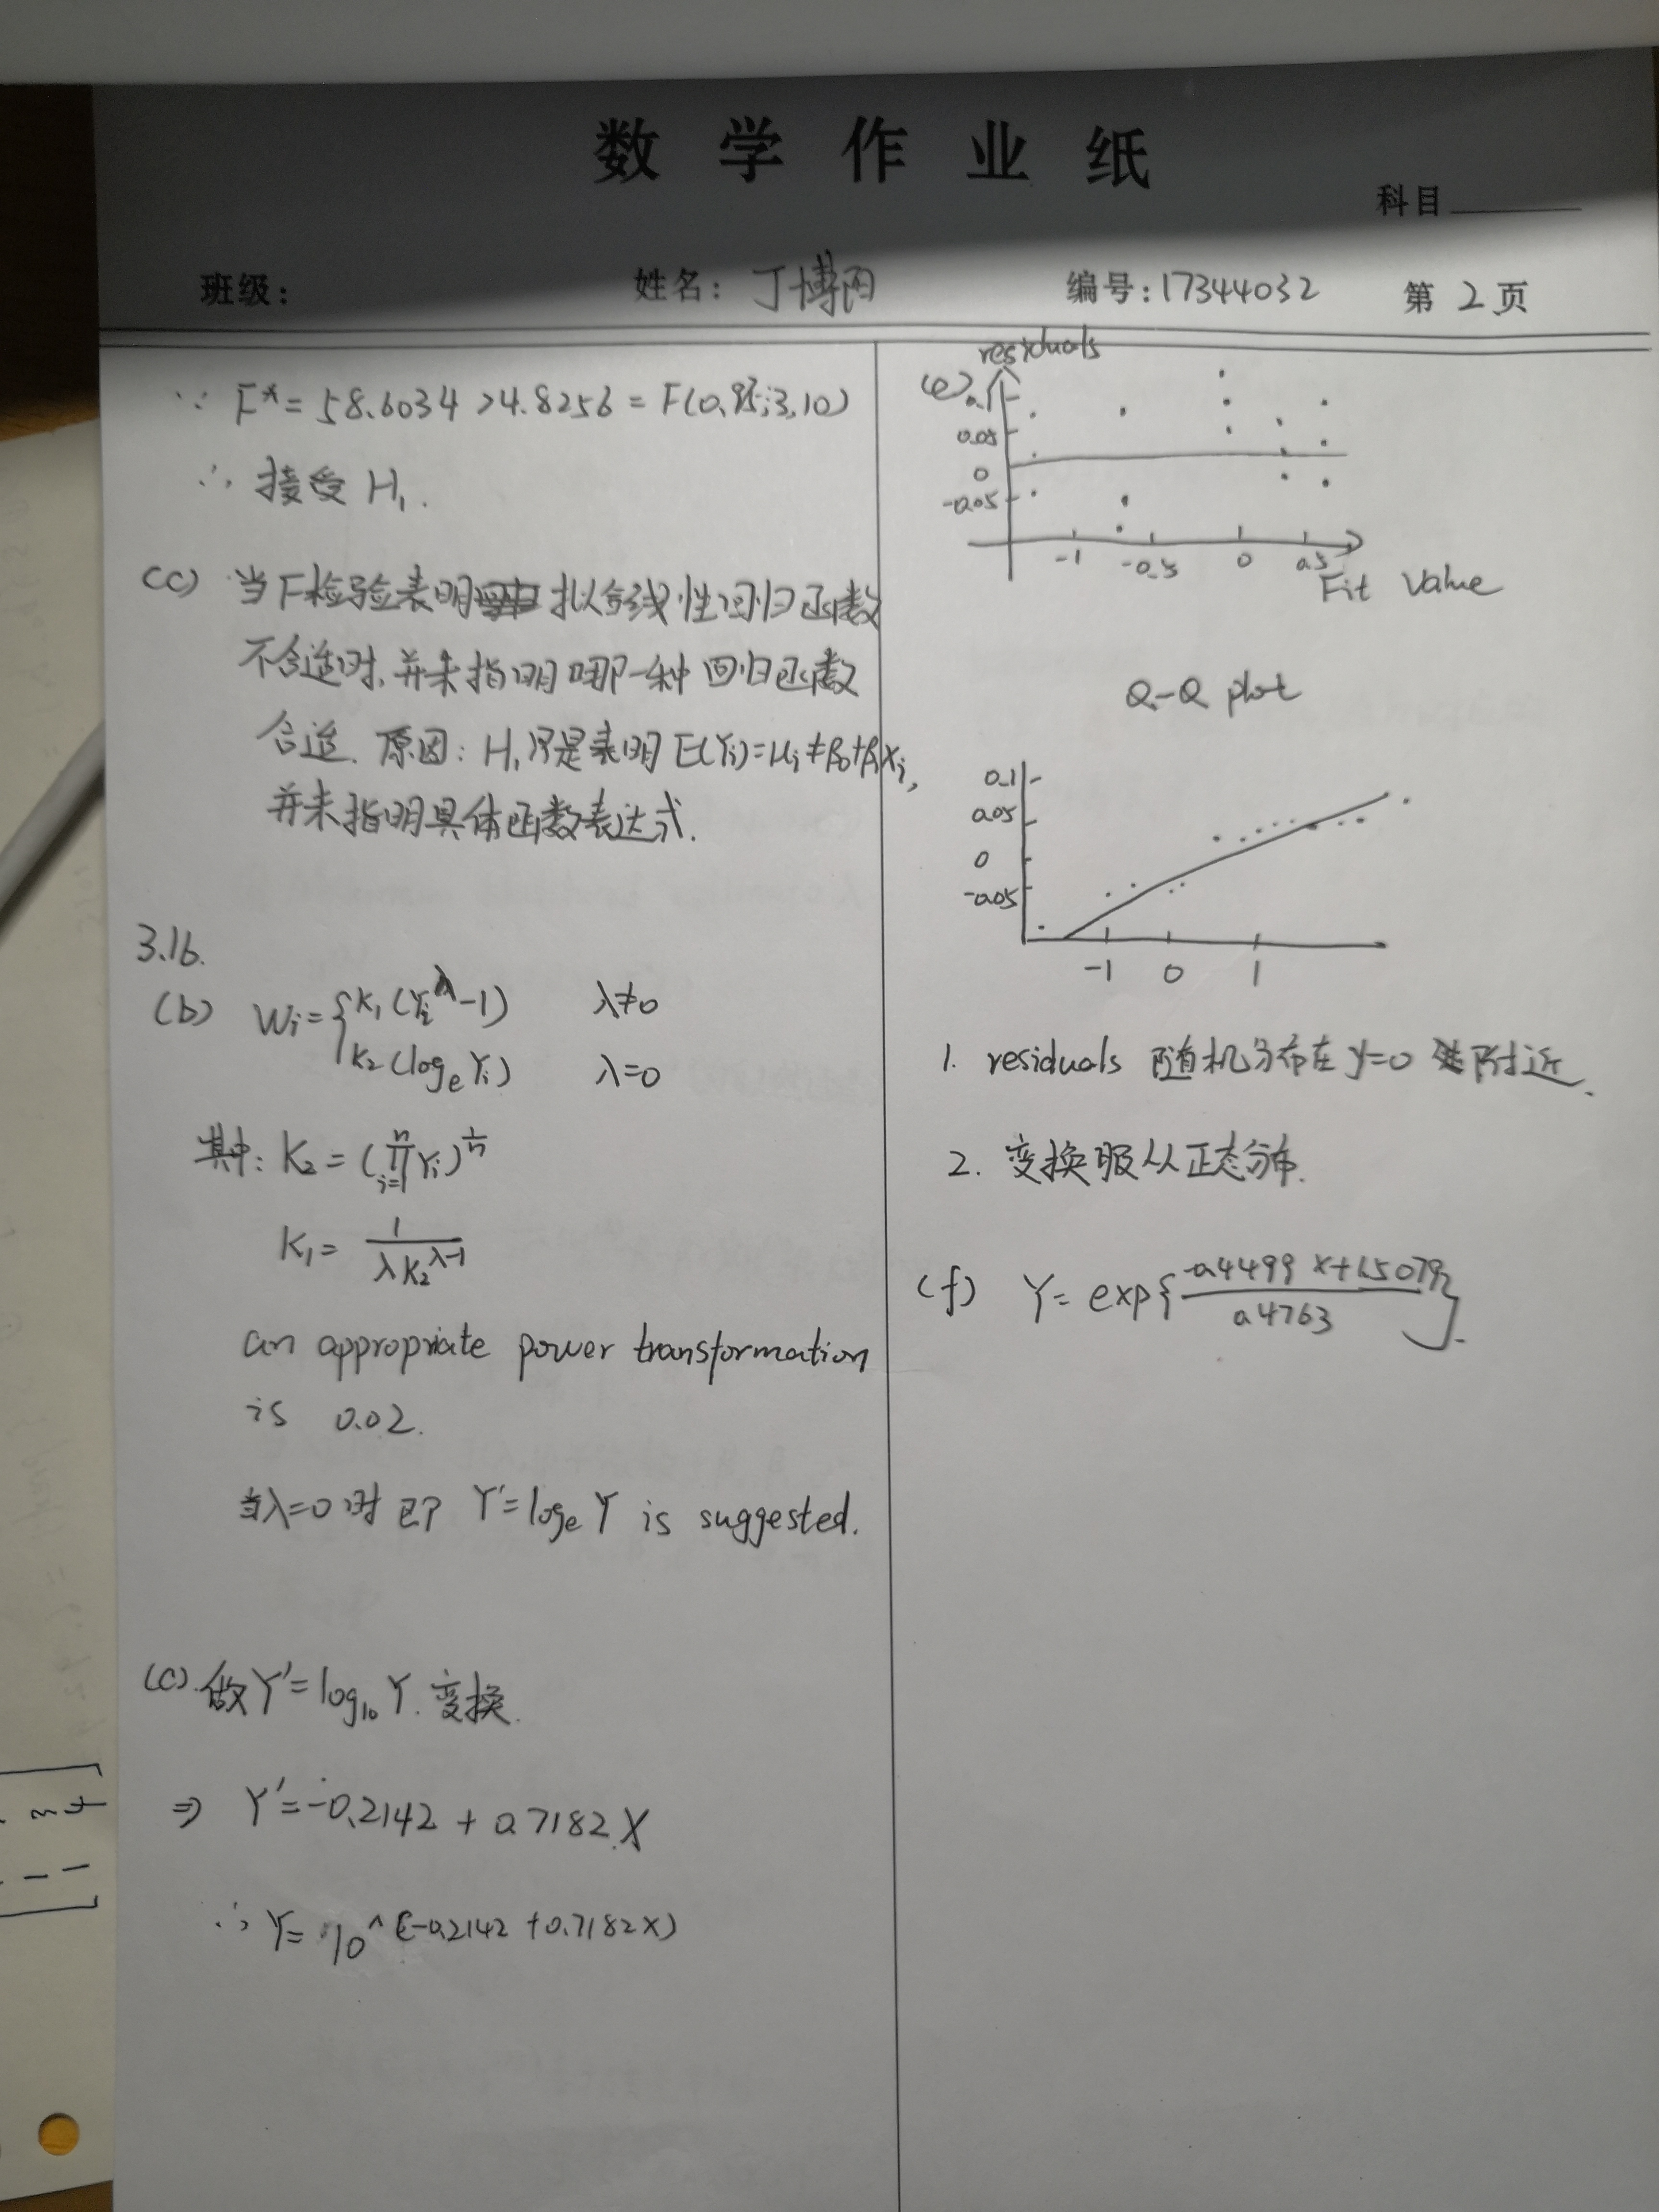 数学作业纸
科目
班级: 姓名: 丁博 编号:17344032 第 2 页
∵ F* = 58.6034 > 4.8256 = F(0.975;3,10)
∴ 接受 H₁.
(c) 当F检验表明 拟合线性回归函数
不合适时,并未指明哪一种回归函数
合适. 原因: H₁只是表明 E(Yi)=μi≠β₀+β₁Xi,
并未指明具体函数表达式.
3.16.
(b) Wi = { K₁(Yi^λ-1) λ≠0
K₂(logₑYi) λ=0
其中: K₂ = (∏_{i=1}^{n} Yi)^{1/n}
K₁ = 1/(λK₂^{λ-1})
an appropriate power transformation
is 0.02.
当λ=0时 即 Y'=logₑY is suggested.
(c). 做Y'=log₁₀Y. 变换.
⇒ Y'=-0.2142 + 0.7182X
∴ Y= 10^(-0.2142+0.7182X)
residuals
(e)
0.1
0.05
0
-0.05
-1 -0.5 0 0.5
Fit Value
Q-Q plot
0.1
0.05
0
-0.05
-1 0 1
1. residuals 随机分布在 y=0 附近.
2. 变换服从正态分布.
(f) Y= exp{(-0.4499X+1.5079)/0.4763}.